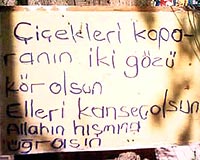 Çiçekleri kopa-
ranın iki gözü
kör olsun
Elleri kanserolsun
Allahın hışmına
uğrasin